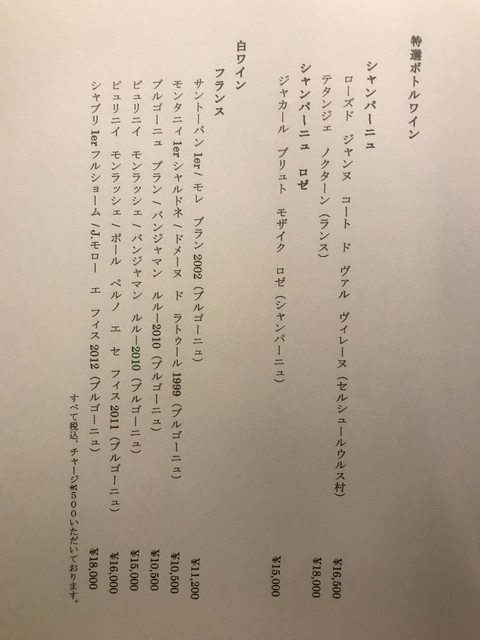 特選ボトルワイン
シャンパーニュ
ローズド ジャンヌ コート ド ヴァル ヴィレーヌ（セルシュールウルス村） ¥16,500
テタンジェ ノクターン（ランス） ¥18,000
シャンパーニュ ロゼ
ジャカール ブリュット モザイク ロゼ（シャンパーニュ） ¥15,000
白ワイン
フランス
サントーバン 1er / モレ ブラン 2002（ブルゴーニュ） ¥11,200
モンタニィ 1er シャルドネ / ドメーヌ ド ラトゥール 1999（ブルゴーニュ） ¥10,500
ブルゴーニュ ブラン / バンジャマン ルルー2010（ブルゴーニュ） ¥10,500
ピュリニイ モンラッシェ / バンジャマン ルルー2010（ブルゴーニュ） ¥15,000
ピュリニイ モンラッシェ / ポール ペルノ エ セ フィス 2011（ブルゴーニュ） ¥16,000
シャブリ 1er フルショーム / J.モロー エ フィス 2012（ブルゴーニュ） ¥18,000
すべて税込、チャージ¥500いただいております。